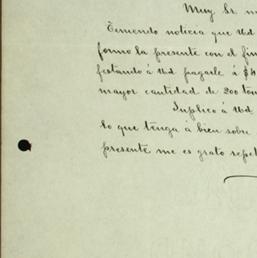 Muy Sr. m
Teniendo noticia que Ud
formo la presente con el fin
festando á Ud. pagarle á $4
mayor cantidad de 200 ton
Suplico á Ud
lo que tenga á bien sobre
presente me es grato repet